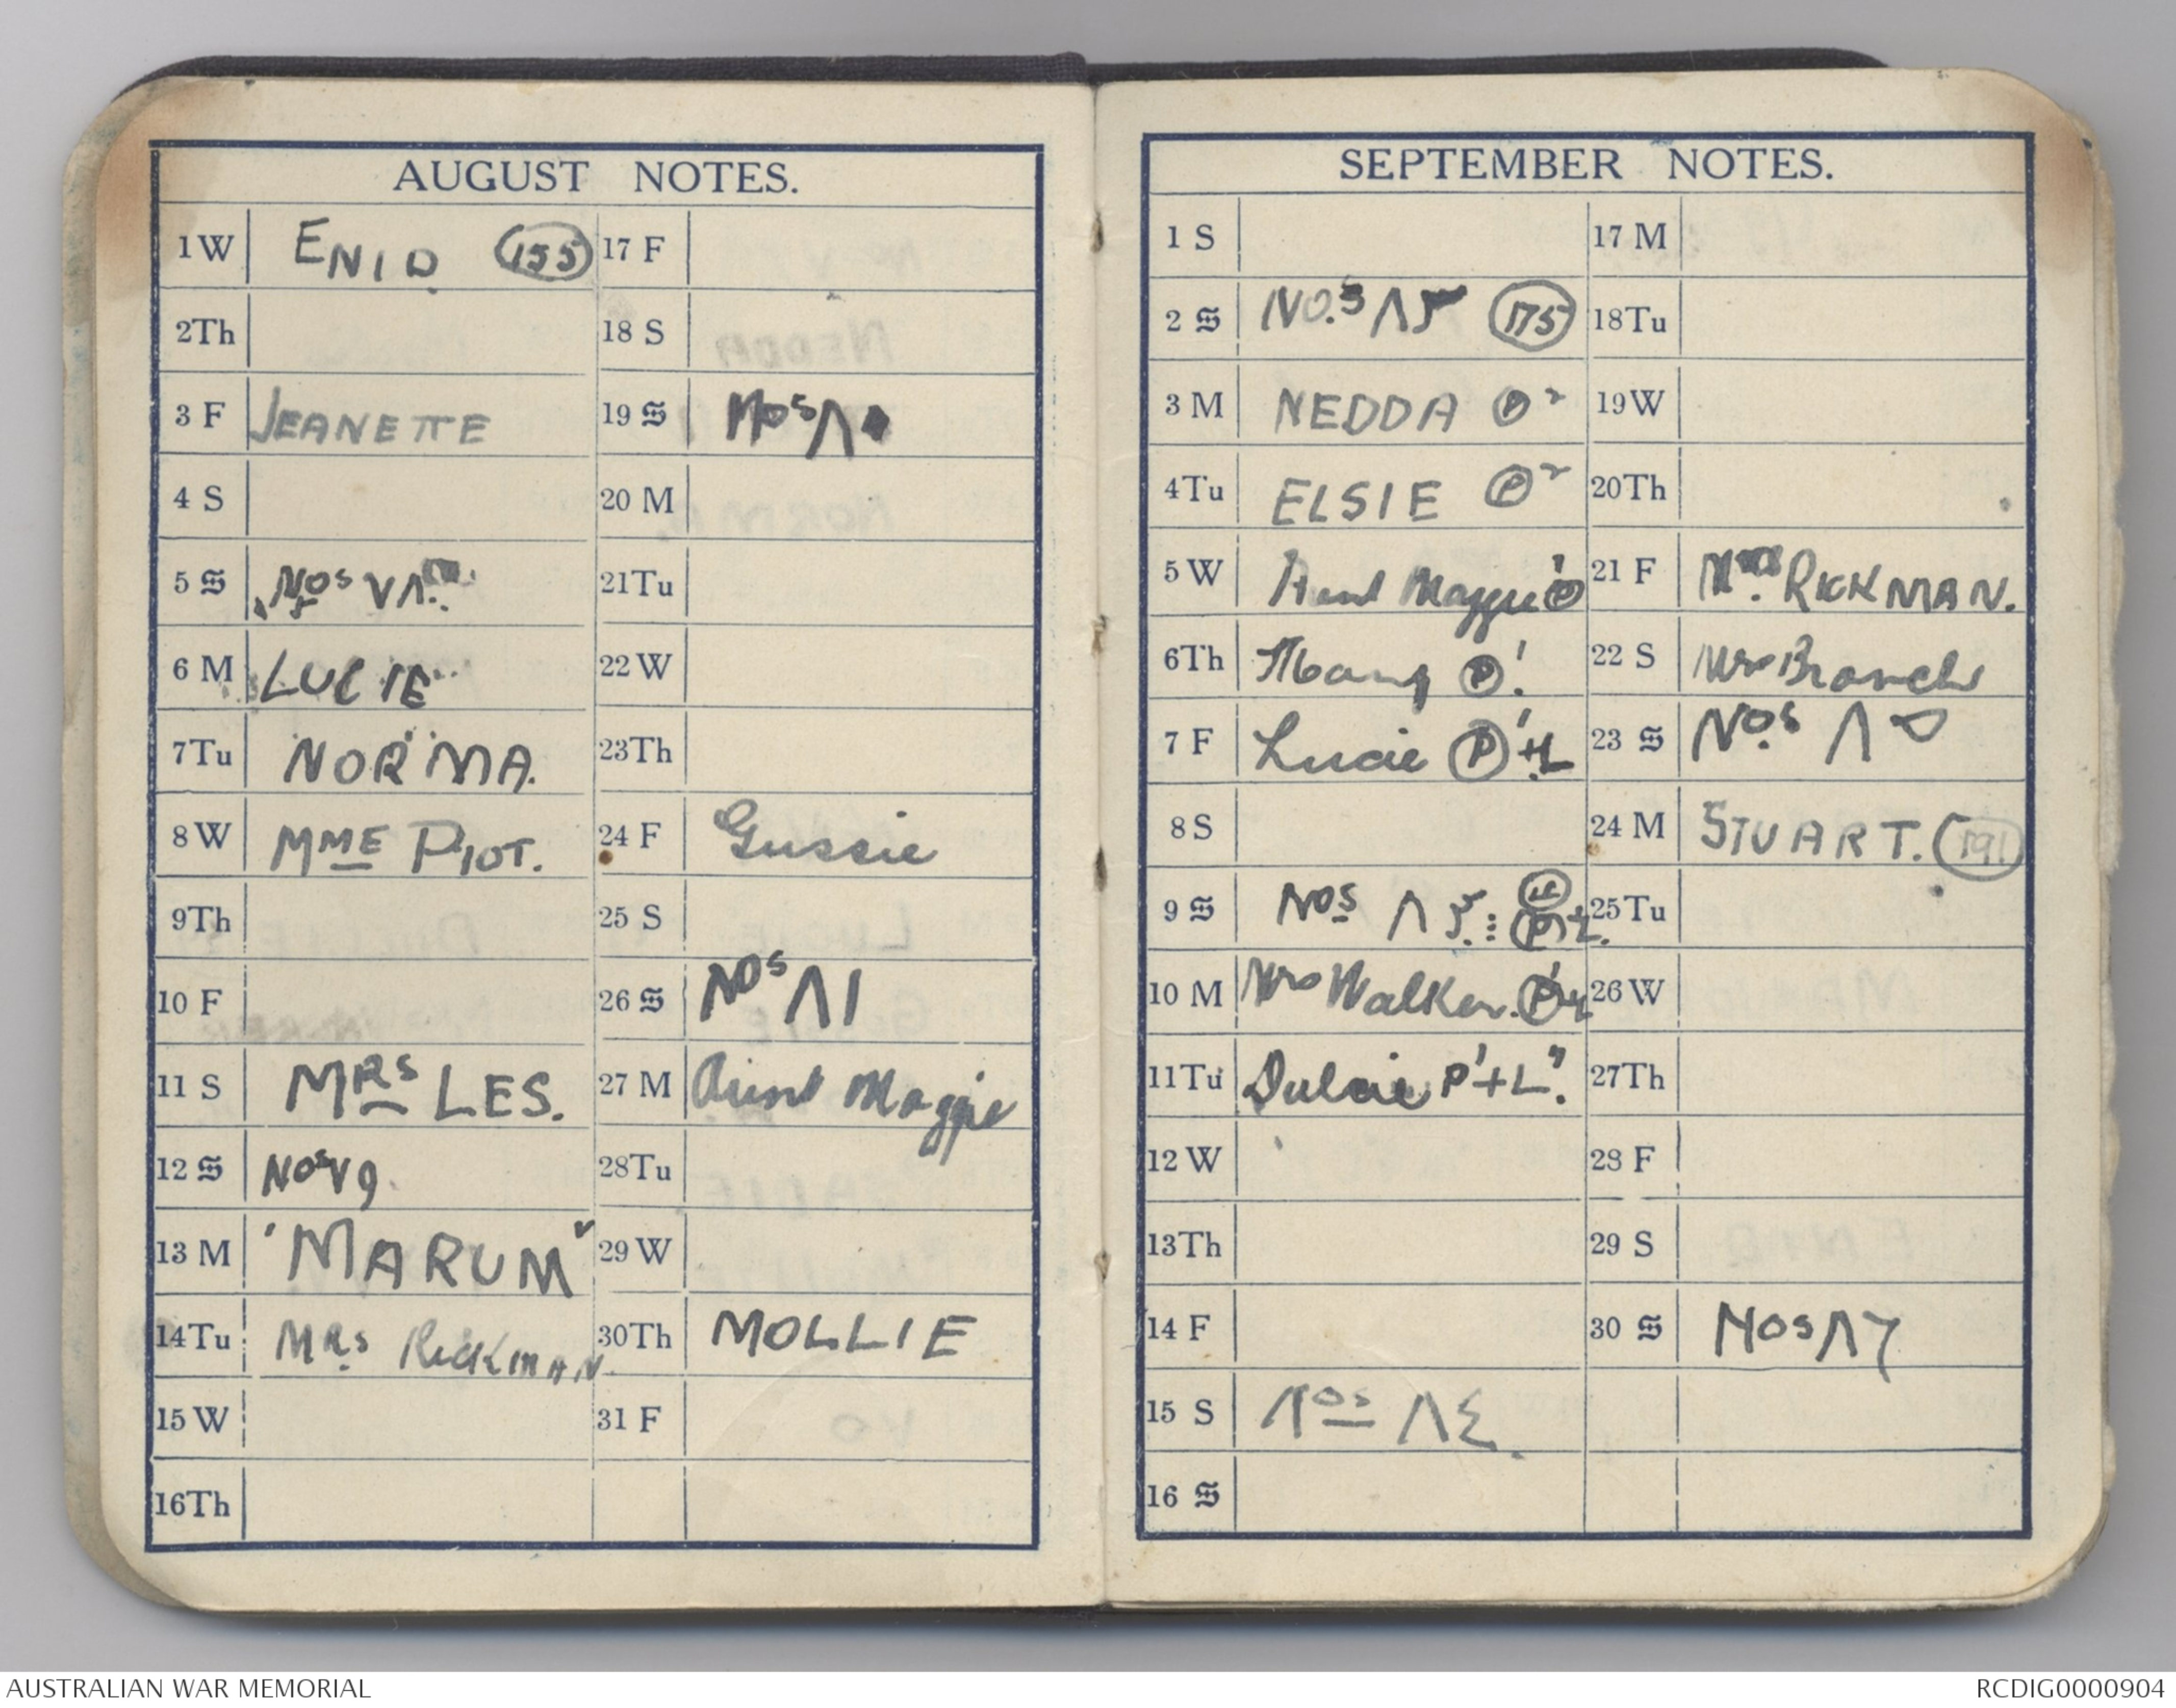 AUGUST NOTES.
1 W ENID (155)
2 Th
3 F JEANETTE
4 S
5 S Nos V Λ
6 M LUCIE
7 Tu NORMA.
8 W MME PIOT.
9 Th
10 F
11 S MRS LES.
12 S Nos V9.
13 M "MARUM"
14 Tu MRS RICKMAN.
15 W
16 Th
17 F
18 S
19 S Nos Λ
20 M
21 Tu
22 W
23 Th
24 F Gussie
25 S
26 S Nos Λ1
27 M Aunt Maggie
28 Tu
29 W
30 Th MOLLIE
31 F
SEPTEMBER NOTES.
1 S
2 S NO.s Λ (175)
3 M NEDDA Ⓟ2
4 Tu ELSIE Ⓟ2
5 W Aunt Maggie Ⓟ1
6 Th Ⓟ1.
7 F Lucie Ⓟ1+L
8 S
9 S Nos Λ Ⓟ+L.
10 M Mrs Walker. Ⓟ1+L
11 Tu Dulcie P1+L".
12 W
13 Th
14 F
15 S Nos Λ
16 S
17 M
18 Tu
19 W
20 Th
21 F Mrs RICKMAN.
22 S Mrs Branch
23 S Nos Λ
24 M STUART. (191)
25 Tu
26 W
27 Th
28 F
29 S
30 S Nos Λ7
AUSTRALIAN WAR MEMORIAL
RCDIG0000904